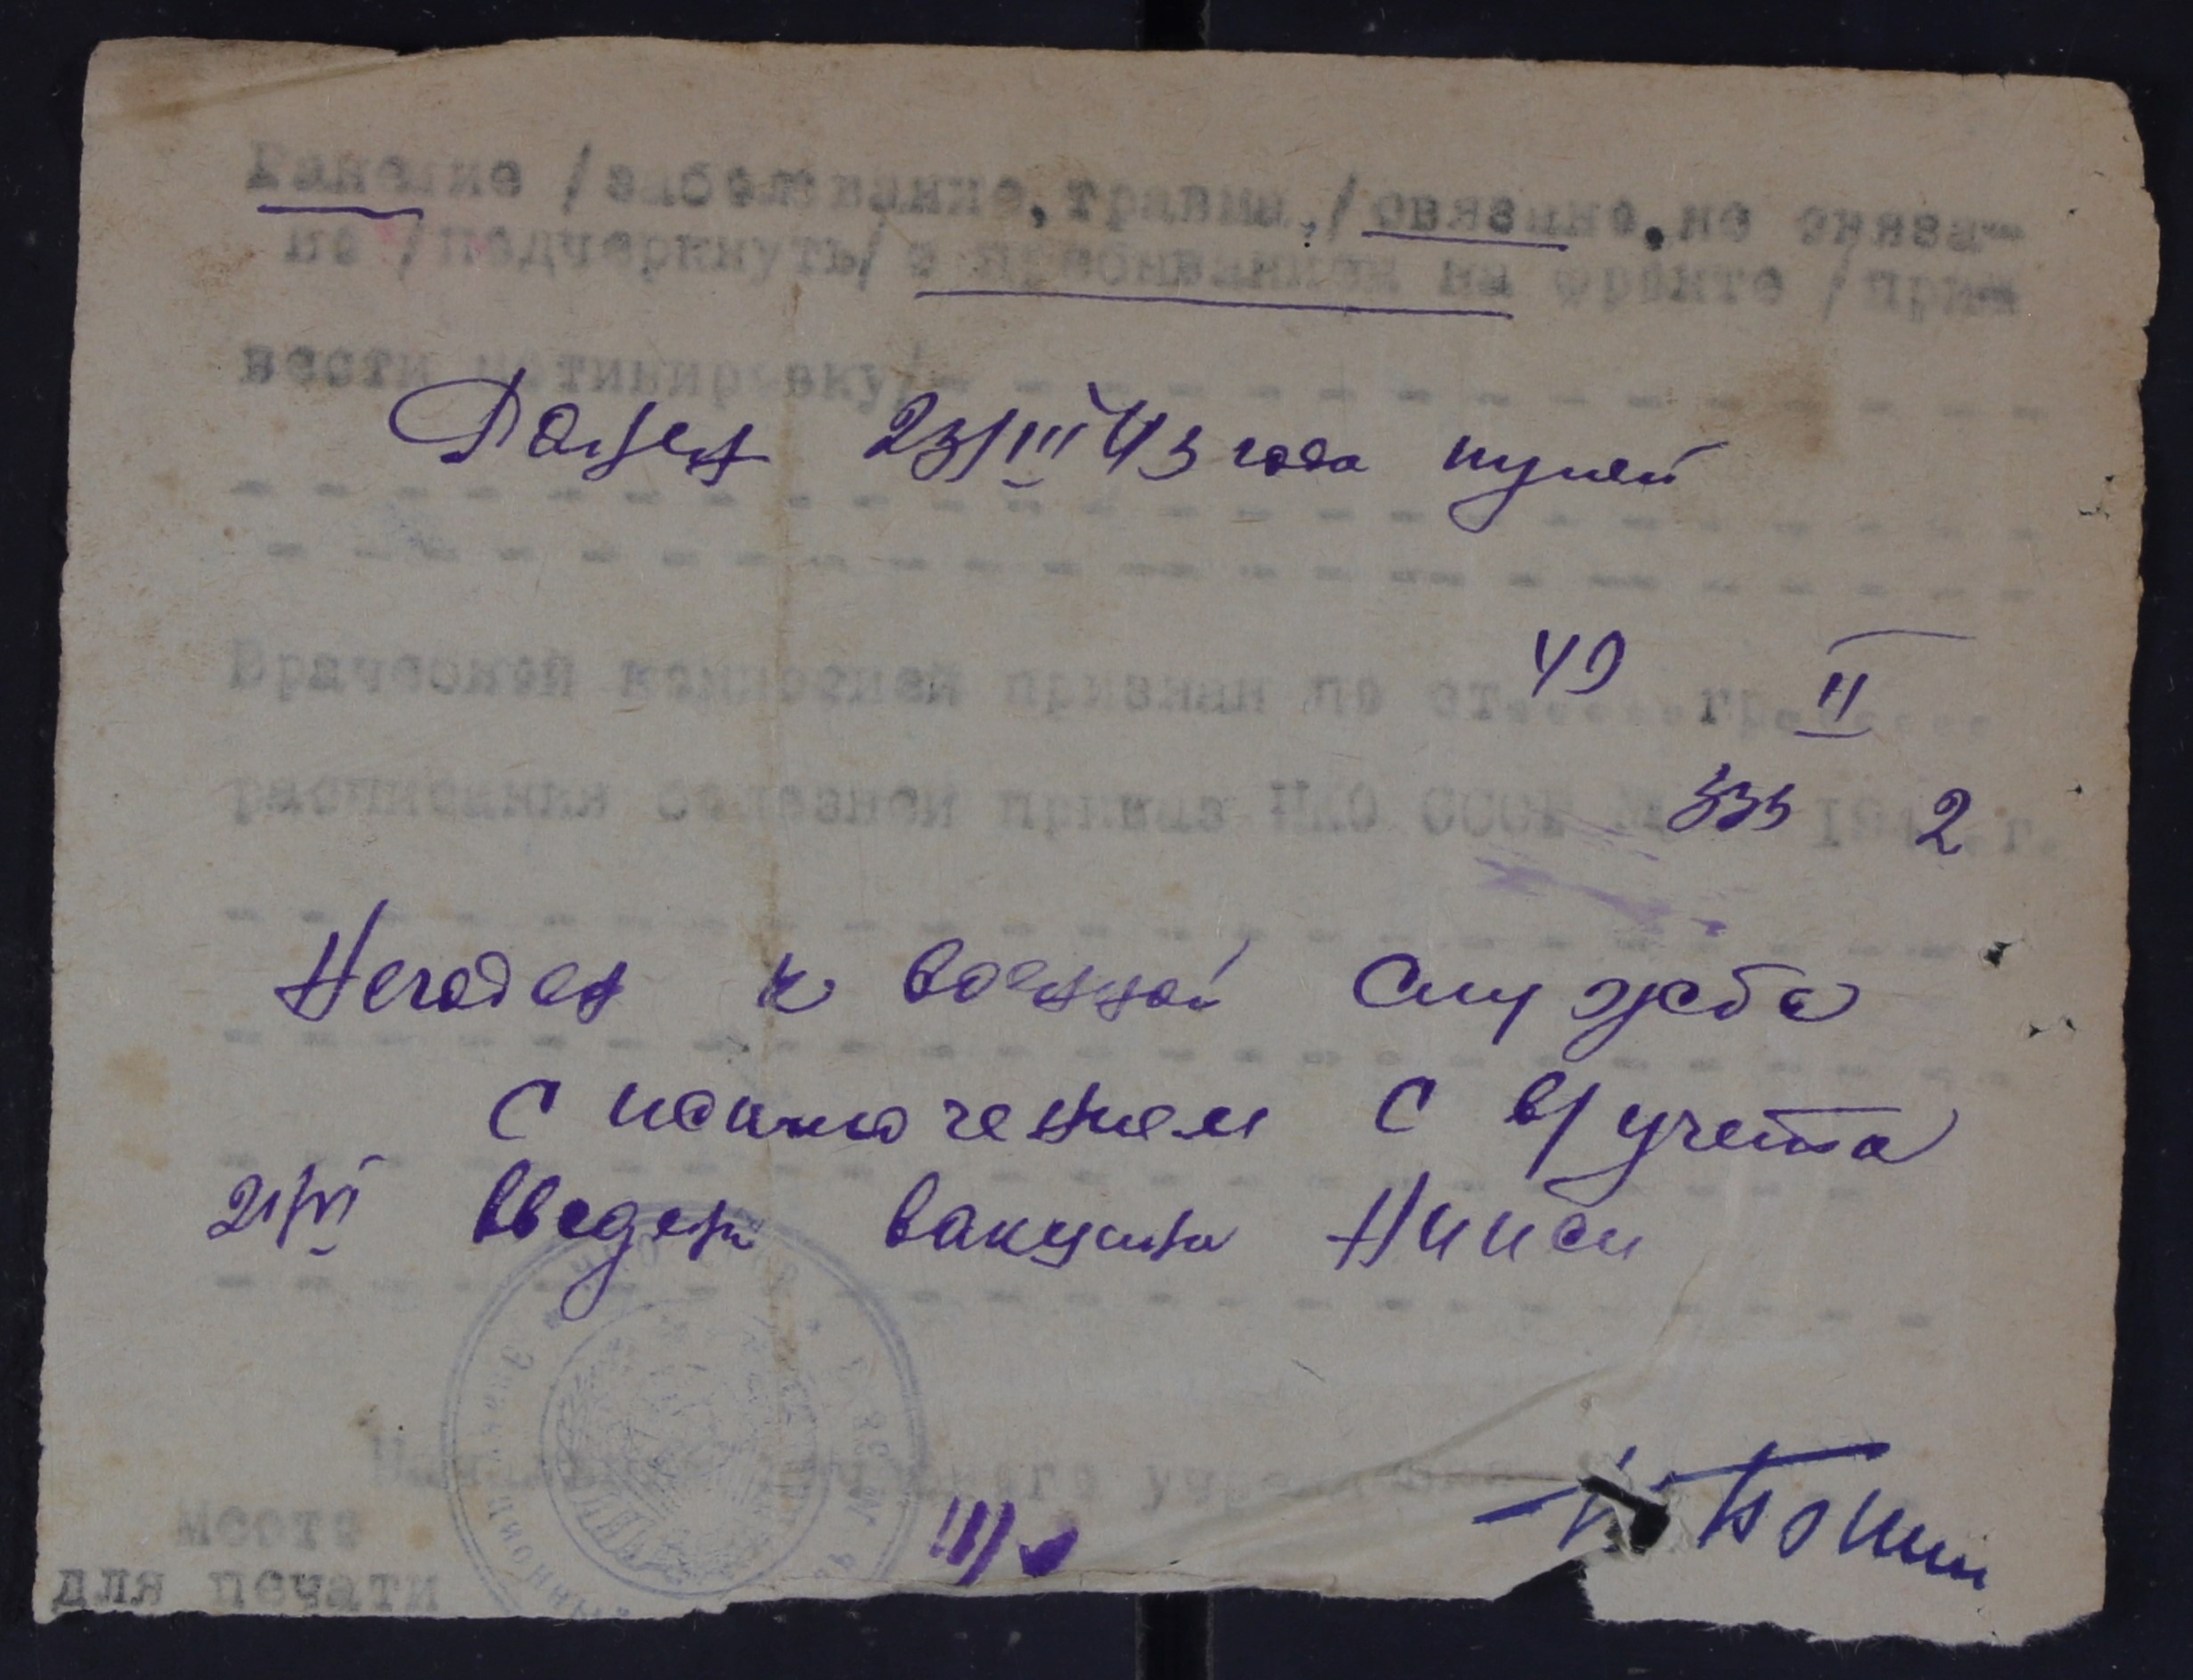 Ранение /заболевание, травма,/ связано, не связа-
но /подчеркнуть/ с пребыванием на фронте /при-
вести мотивировку/
Ранен 23/III 43 года пулей
Врачебной комиссией признан по ст. 49 гр. II
расписания болезней приказа НКО СССР 336 194 2 г.
Негоден к военной службе
с исключением с в/учета
21/VI введен вакцина НИИСИ
Начальник лечебного учреждения
Место
для печати